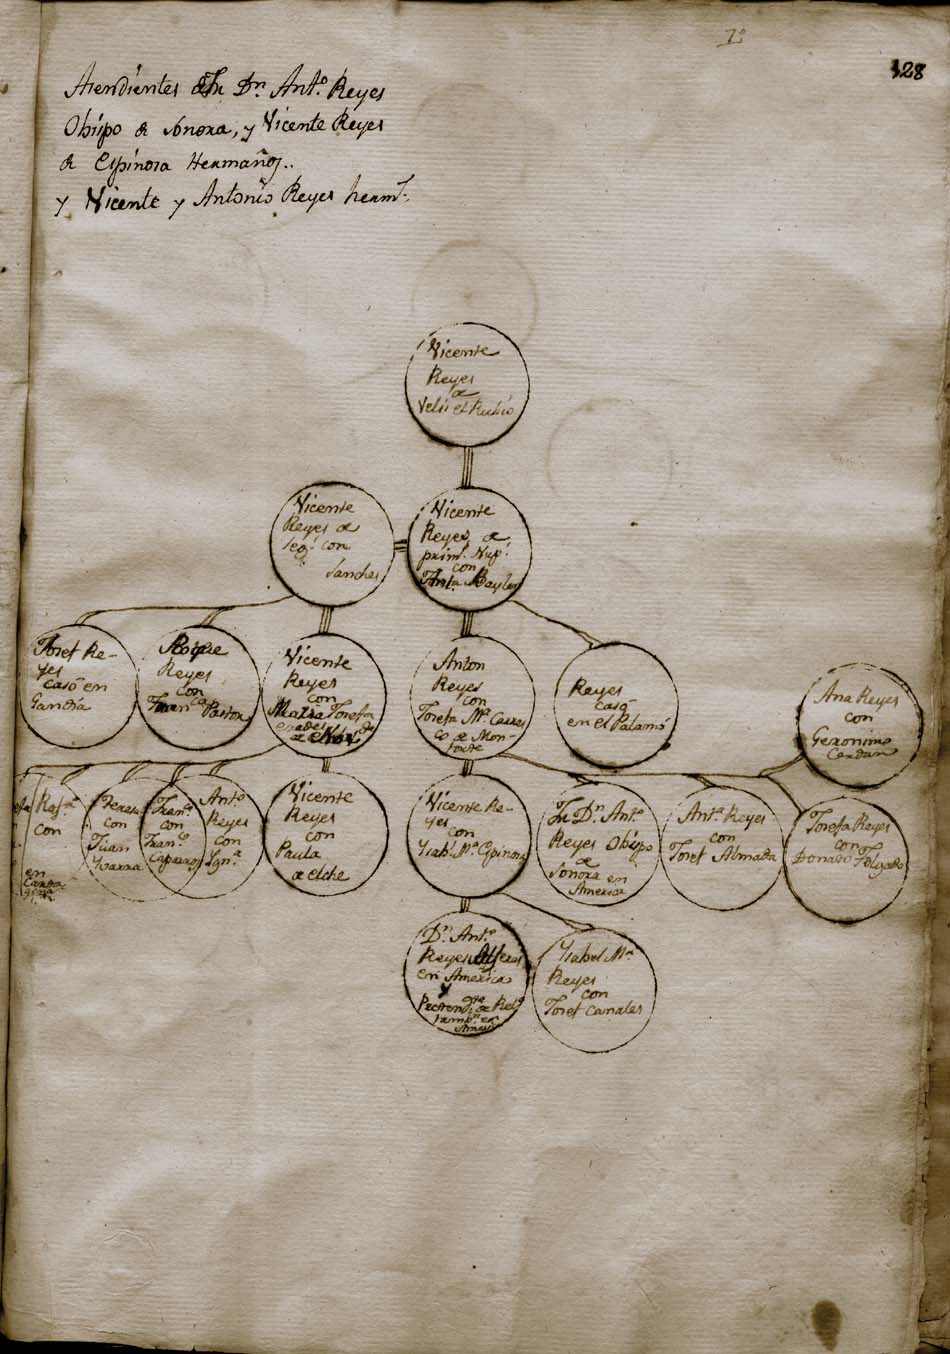 1º
128
Atendientes Dn. Anto. Reyes
Obispo de Sonora, y Vicente Reyes
de Espinosa Hermanos..
y Vicente y Antonio Reyes herms.
Vicente
Reyes
de
Velis el Rubio
Vicente
Reyes de
seg. con
Sanches
Vicente
Reyes de
prim. Nup.
con
Anta. Bayles
Josef Re-
yes
casó en
Gandia
Roque
Reyes
con
Franca. Pastor
Vicente
Reyes
con
Maria Josefa
de Elche
Anton
Reyes
con
Josefa Ma.
co de Mon-
forte
Reyes
casó
en el Palamó
Ana Reyes
con
Geronimo
Cerdan
Rafa.
con
en
Carta-
gena
Teresa
con
Juan
Yvarra
Franca.
con
Franco.
Caparros
Anto.
Reyes
con
Igna.
Vicente
Reyes
con
Paula
de Elche
Vicente Re-
yes
con
Ysabl. Ma. Espinosa
Dn. Anto.
Reyes Obispo
de
Sonora en
America
Anta. Reyes
con
Josef Almada
Josefa Reyes
con
Donato Folgado
Dn. Anto.
Reyes Alferes
en America
y
Ysabel Ma.
Reyes
con
Josef Canales